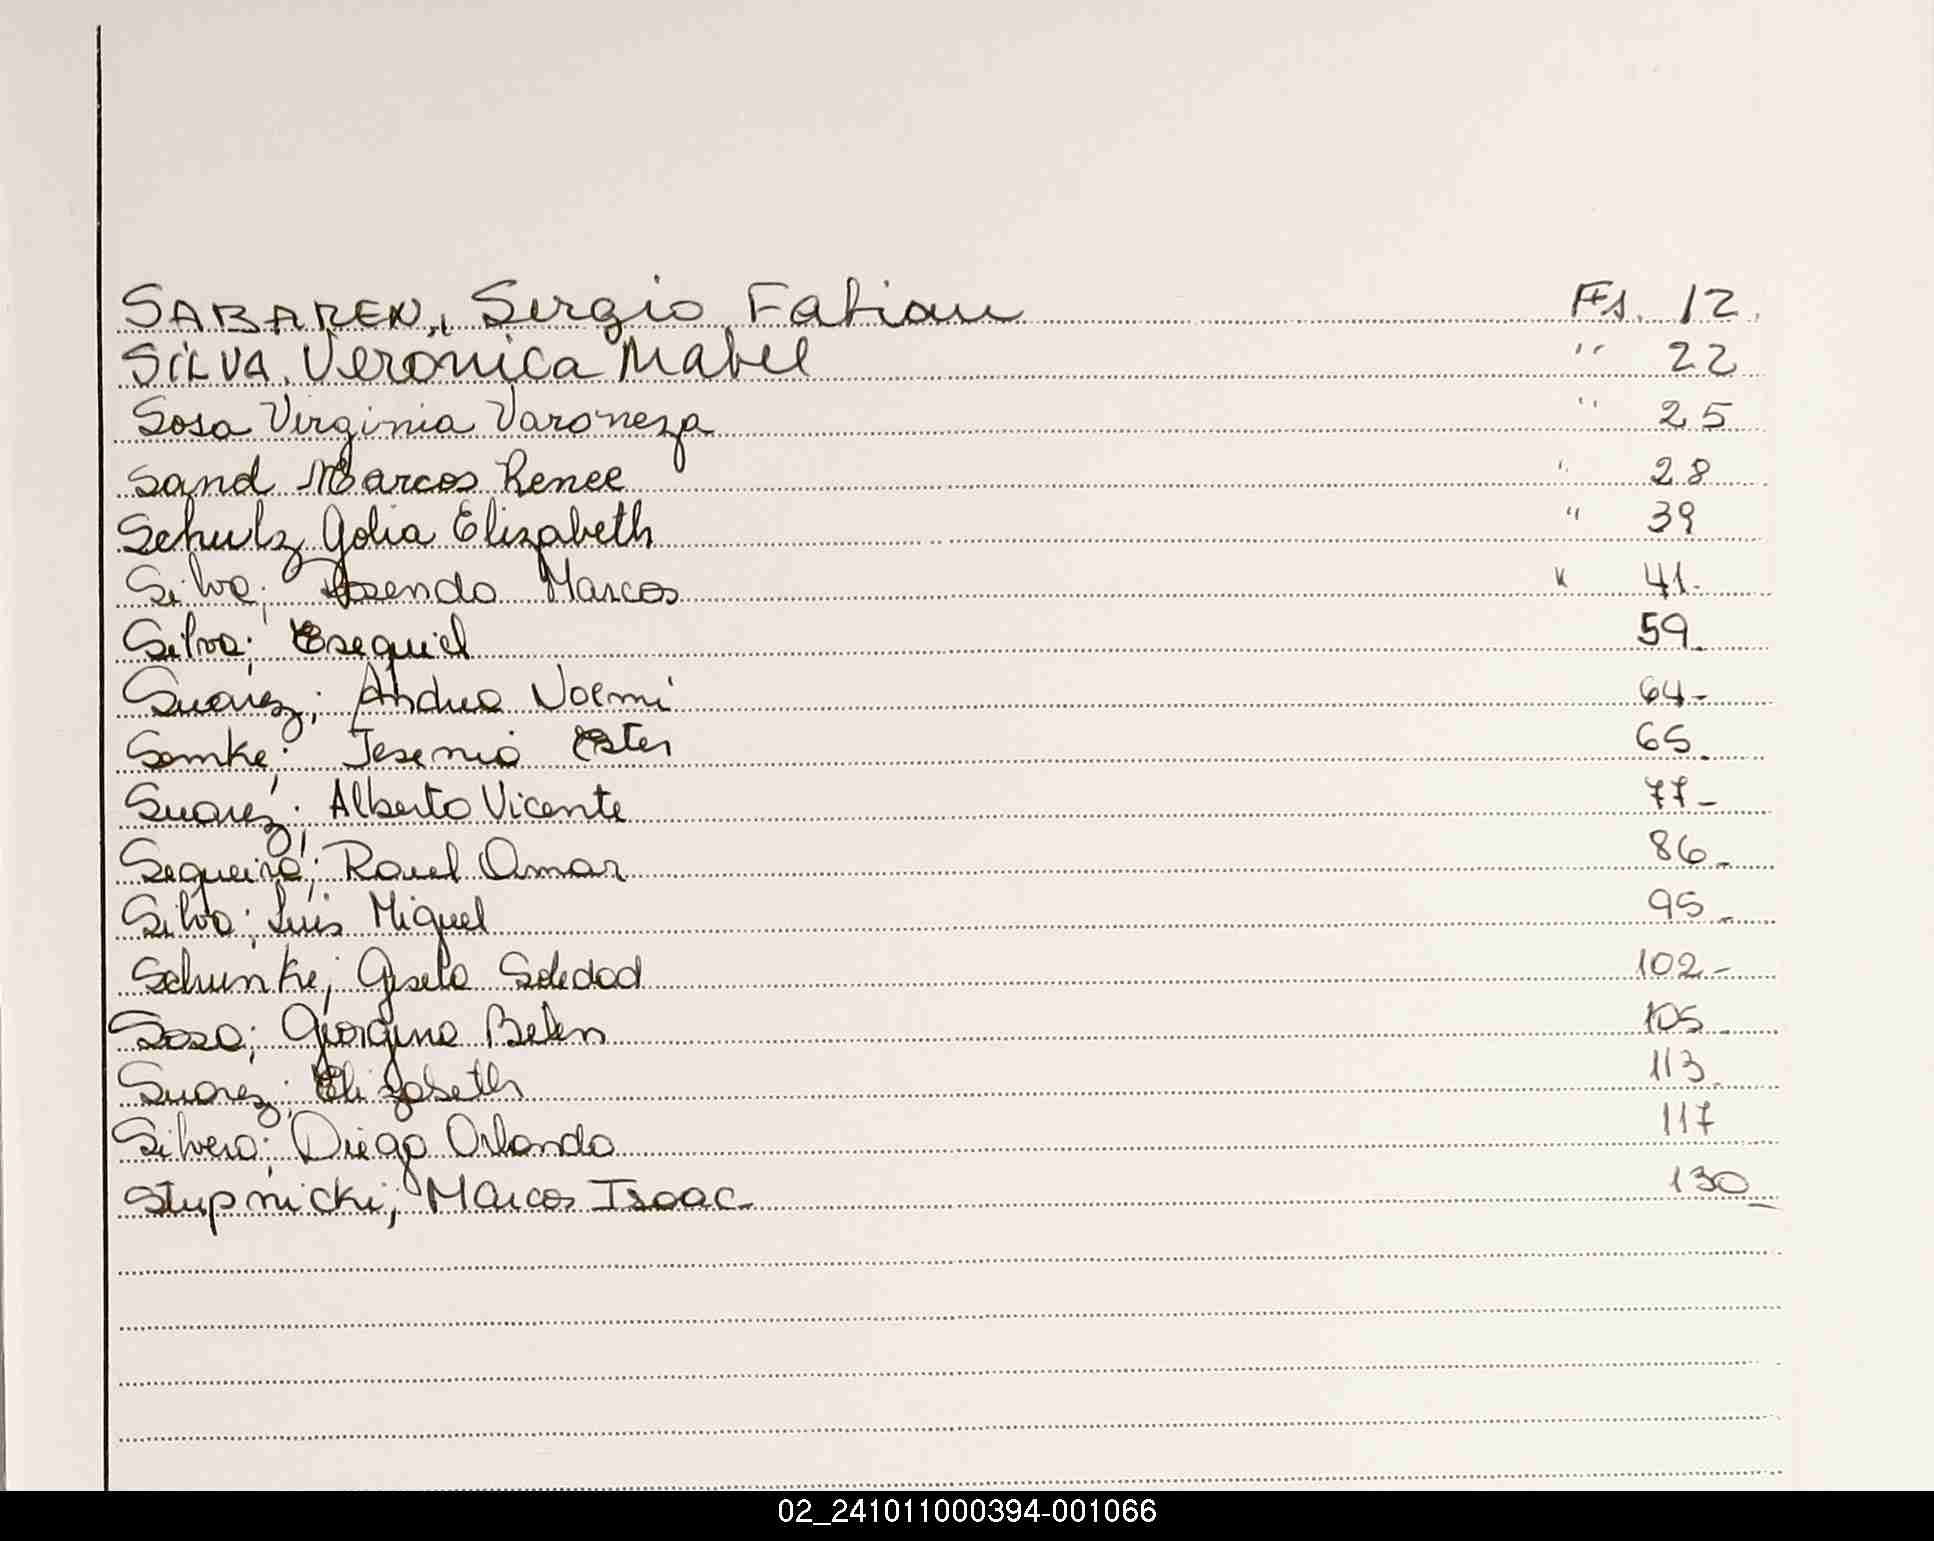 SABAREN, Sergio Fabian Fs. 12.
SILVA, Veronica Mabel " 22
Sosa Virginia Varoneza " 25
Sand Marcos Renee " 28
Schulz Golia Elizabeth " 39
Silva; Rosendo Marcos " 41-
Silva; Esequiel 59.
Suarez; Andrea Noemi 64-
Semke; Jesenia Ester 65.
Suarez; Alberto Vicente 77-
Sequeira; Raul Omar 86-
Silva; Luis Miguel 95-
Schunke; Gisela Soledad 102-
Sosa; Giorgina Belen 105-
Suarez; Elizabeth 113.
Silvero; Diego Orlando 117
Stupnicki, Marcos Isaac 130_
02_241011000394-001066